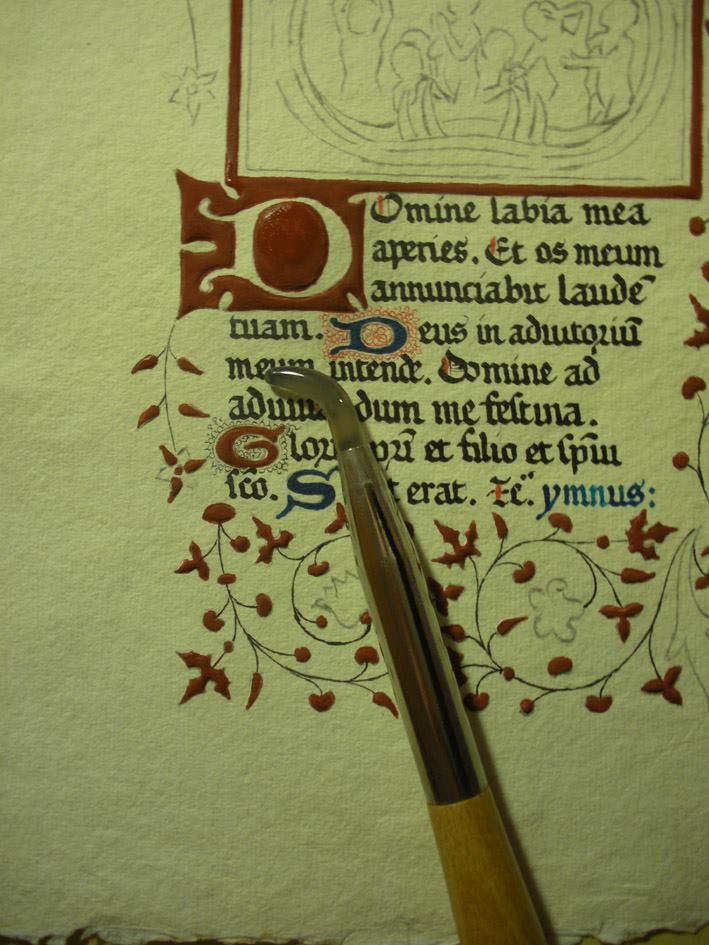 DOmine labia mea
aperies. Et os meum
annunciabit laudē
tuam. Deus in adiutoriū
meum intende. Domine ad
me festina.
et filio et sp̄iu
sc̄o. erat. ymnus: